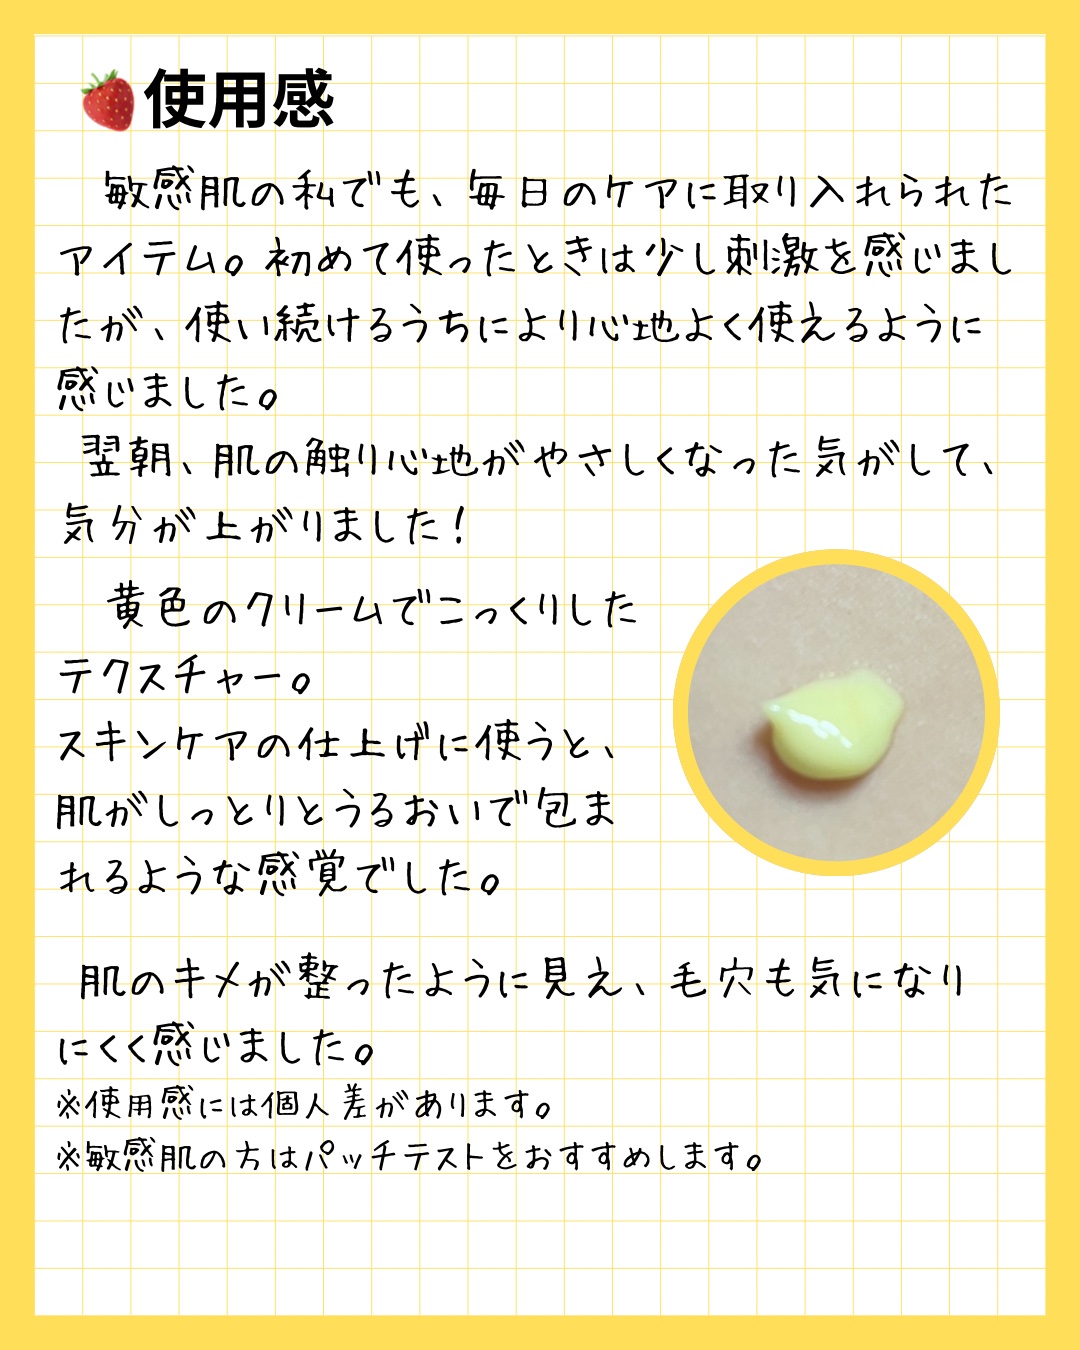 使用感
敏感肌の私でも、毎日のケアに取り入れられた
アイテム。初めて使ったときは少し刺激を感じまし
たが、使い続けるうちにより心地よく使えるように
感じました。
翌朝、肌の触り心地がやさしくなった気がして、
気分が上がりました！
黄色のクリームでこっくりした
テクスチャー。
スキンケアの仕上げに使うと、
肌がしっとりとうるおいで包ま
れるような感覚でした。
肌のキメが整ったように見え、毛穴も気になり
にくく感じました。
※使用感には個人差があります。
※敏感肌の方はパッチテストをおすすめします。